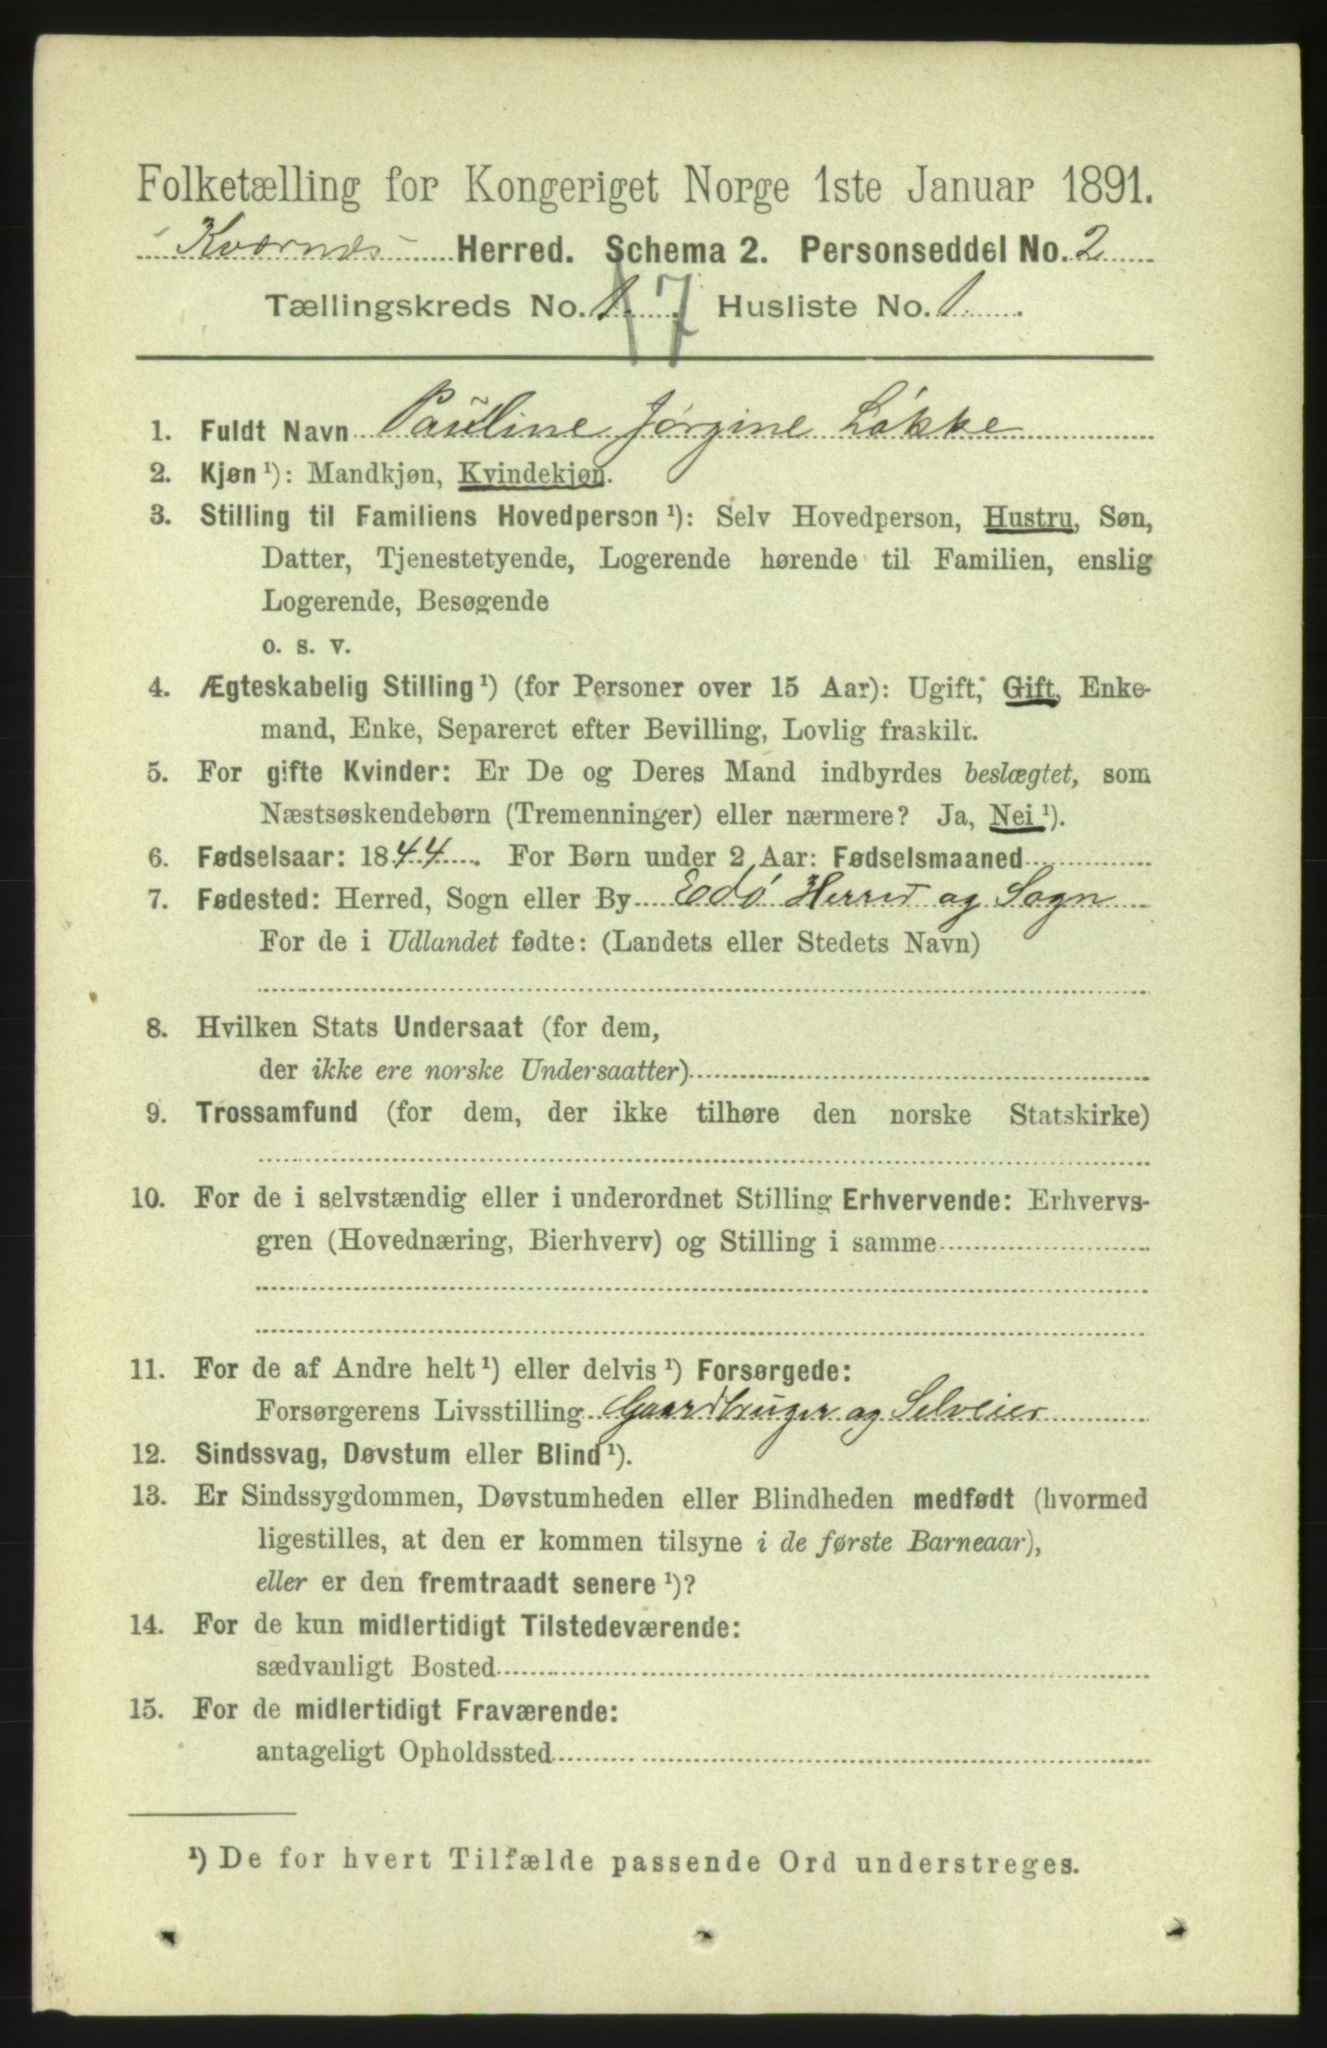 Folketælling for Kongeriget Norge 1ste Januar 1891.
Kvernes Herred. Schema 2. Personseddel No. 2
Tællingskreds No. 1. 17 Husliste No. 1.
1. Fuldt Navn Pauline Jørgine Løkke
2. Kjøn ¹): Mandkjøn, Kvindekjøn.
3. Stilling til Familiens Hovedperson ¹): Selv Hovedperson, Hustru, Søn,
Datter, Tjenestetyende, Logerende hørende til Familien, enslig
Logerende, Besøgende
o. s. v.
4. Ægteskabelig Stilling ¹) (for Personer over 15 Aar): Ugift, Gift, Enke-
mand, Enke, Separeret efter Bevilling, Lovlig fraskilt.
5. For gifte Kvinder: Er De og Deres Mand indbyrdes beslægtet, som
Næstsøskendebørn (Tremenninger) eller nærmere? Ja, Nei ¹).
6. Fødselsaar: 1844. For Børn under 2 Aar: Fødselsmaaned
7. Fødested: Herred, Sogn eller By Edø Herred og Sogn
For de i Udlandet fødte: (Landets eller Stedets Navn)
8. Hvilken Stats Undersaat (for dem,
der ikke ere norske Undersaatter)
9. Trossamfund (for dem, der ikke tilhøre den norske Statskirke)
10. For de i selvstændig eller i underordnet Stilling Erhvervende: Erhvervs-
gren (Hovednæring, Bierhverv) og Stilling i samme
11. For de af Andre helt ¹) eller delvis ¹) Forsørgede:
Forsørgerens Livsstilling Gaardbruger og Selveier
12. Sindssvag, Døvstum eller Blind ¹).
13. Er Sindssygdommen, Døvstumheden eller Blindheden medfødt (hvormed
ligestilles, at den er kommen tilsyne i de første Barneaar),
eller er den fremtraadt senere ¹)?
14. For de kun midlertidigt Tilstedeværende:
sædvanligt Bosted
15. For de midlertidigt Fraværende:
antageligt Opholdssted
¹) De for hvert Tilfælde passende Ord understreges.